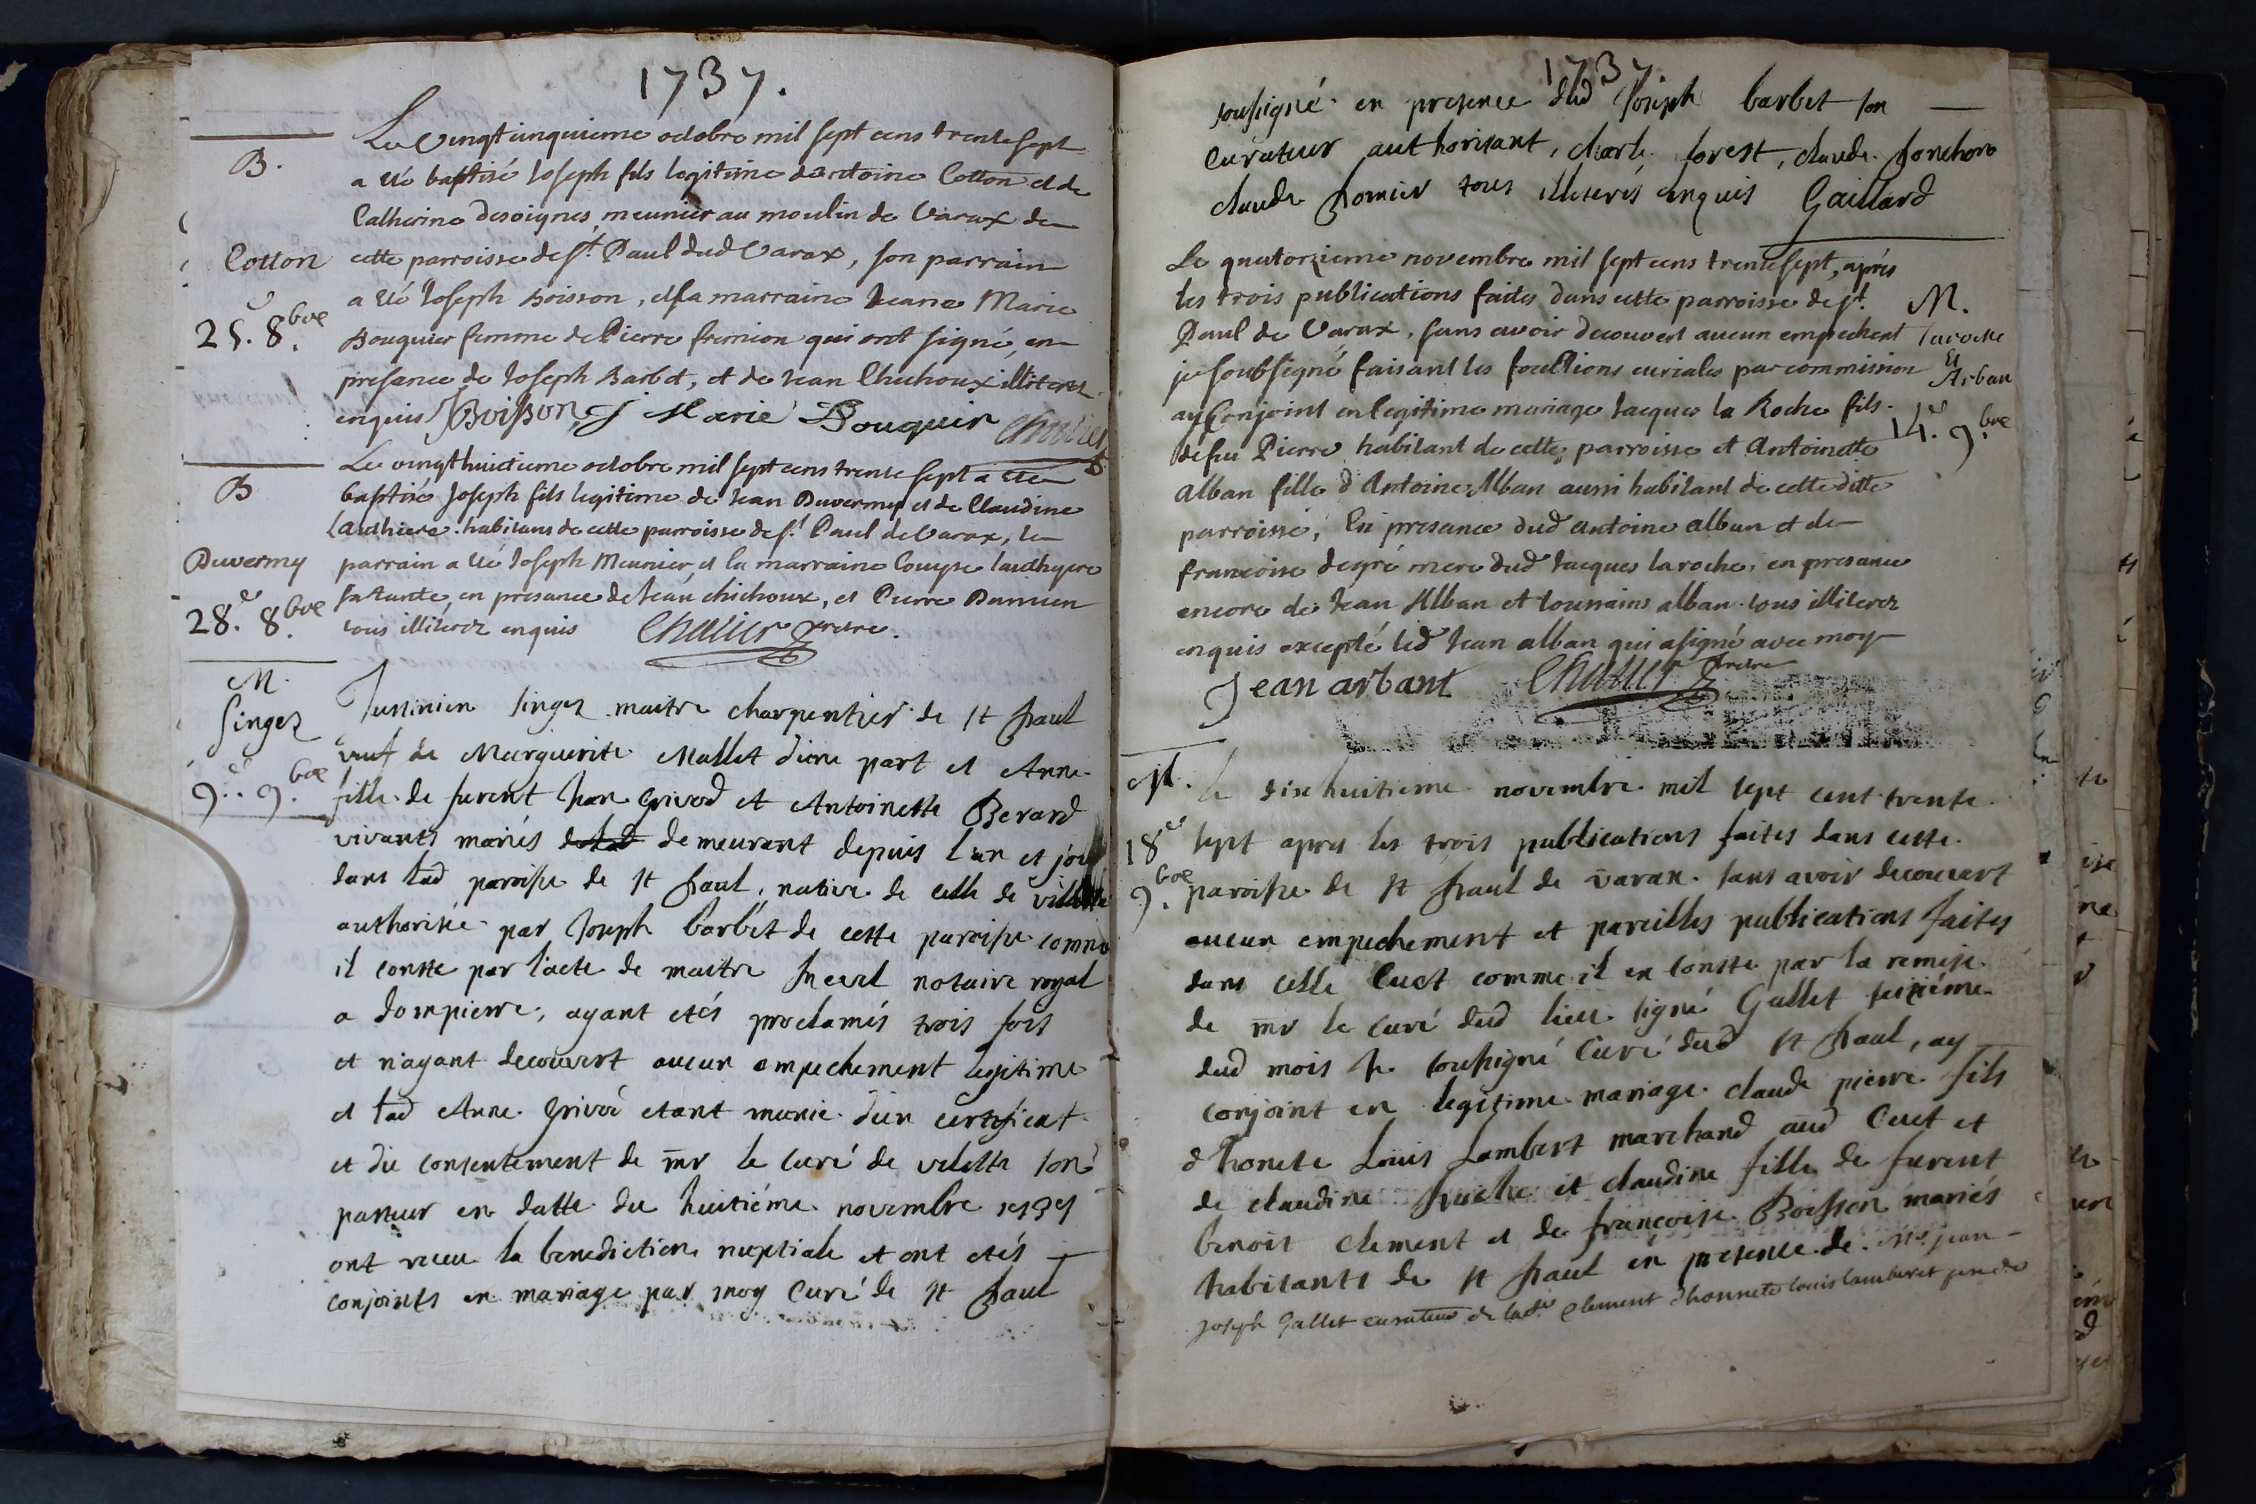 1737.
B.
Cotton
25.e 8.bre
Le vingt cinquieme octobre mil sept cens trente sept
a eté baptisé Joseph fils legitime d'antoine Cotton et de
Catherine desoignes, meunier au moulin de Varax de
cette parroisse de st. Paul dud Varax, son parrain
a eté Joseph Boisson, et sa marraine Jeane Marie
Bouquier femme de Pierre fremion qui ont signé, en
presance de Joseph Barbet, et de Jean Chichoux illiterez
enquis J Boisson J Marie Bouquir
B
Duvermy
28.e 8.bre
Le vingthuictieme octobre mil sept cens trente sept a eté
baptisé Joseph fils legitime de Jean Duvermy et de Claudine
Lauthiere habitans de cette parroisse de st. Paul de Varax, le
parrain a eté Joseph Meunier, et la marraine Louyse lauthyere
sa tante, en presance de Jean chichoux, et Pierre
tous illiterez enquis
M.
Singez
9.e 9.bre
Justinien Singez maitre charpentier de st paul
veuf de Marguerite Mallet d'une part et Anne
fille de furent Jean Grivod et Antoinette Berard
vivants mariés demeurant depuis l'an et jour
dans lad paroisse de st paul, native de celle de
authorisée par Joseph barbet de cette paroisse comme
il conste par l'acte de maitre notaire royal
a dompierre, ayant etés proclamés trois fois
et n'ayant decouvert aucun empechement legitime
et lad Anne grivod etant munie d'un certificat
et du consentement de mr le curé de vilette son
pasteur en datte du huitiéme novembre 1737
ont receu la benediction nuptiale et ont etés
conjoints en mariage par moy Curé de st paul
1737
soussigné en presence dud Joseph barbet son
Curateur authorisant, charle forest, claude
claude tous illiterés enquis Gaillard
M.
Laroche
Et
Arban
14.e 9.bre
Le quatorzieme novembre mil sept cens trente sept, aprés
les trois publications faites dans cette parroisse de st.
Paul de Varax, sans avoir decouvert aucun empechent
je soubsigné faisant les fonctions curiales par commission
ay Conjoint en legitime mariage Jacques la Roche fils
de feu Pierre habitant de cette parroisse et Antoinette
Alban fille d'Antoine Alban aussi habitant de cette ditte
parroisse, En presance dud antoine alban et de
francoise degré mere dud Jacques laroche, en presance
encore de Jean Alban et toussains alban tous illiterez
enquis excepté led Jean alban qui a signé avec moy
Jean arbant
M.
18e
9.bre
le dix huitieme novembre mil sept cent trente
sept apres les trois publications faites dans cette
paroisse de st paul de varax sans avoir decouvert
aucun empechement et pareilles publications faites
dans celle Cuet comme il en conste par la remise
de mr le curé dud lieu signé Gallet seiziéme
dud mois Je soussigné Curé dud st paul, ay
conjoint en legitime mariage claude pierre fils
d'honete Louis Lambert marchand aud Cuet et
de claudine et claudine fille de furent
benoit clement et de francoise Boisson mariés
habitants de st paul en presence de Me jean
joseph Gallet curateur de lade clement d'honnete louis lamberet pere de